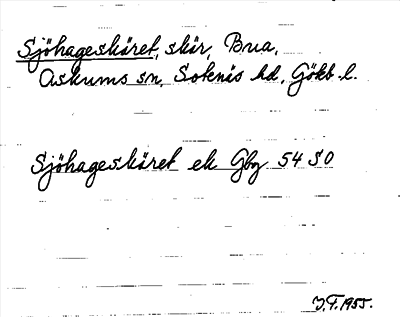 Sjöhageskäret, skär, Brua,
Askums sn, Sotenäs hd, Götb. l.
Sjöhageskäret ek Gbg 54 SO
J.F. 1955.